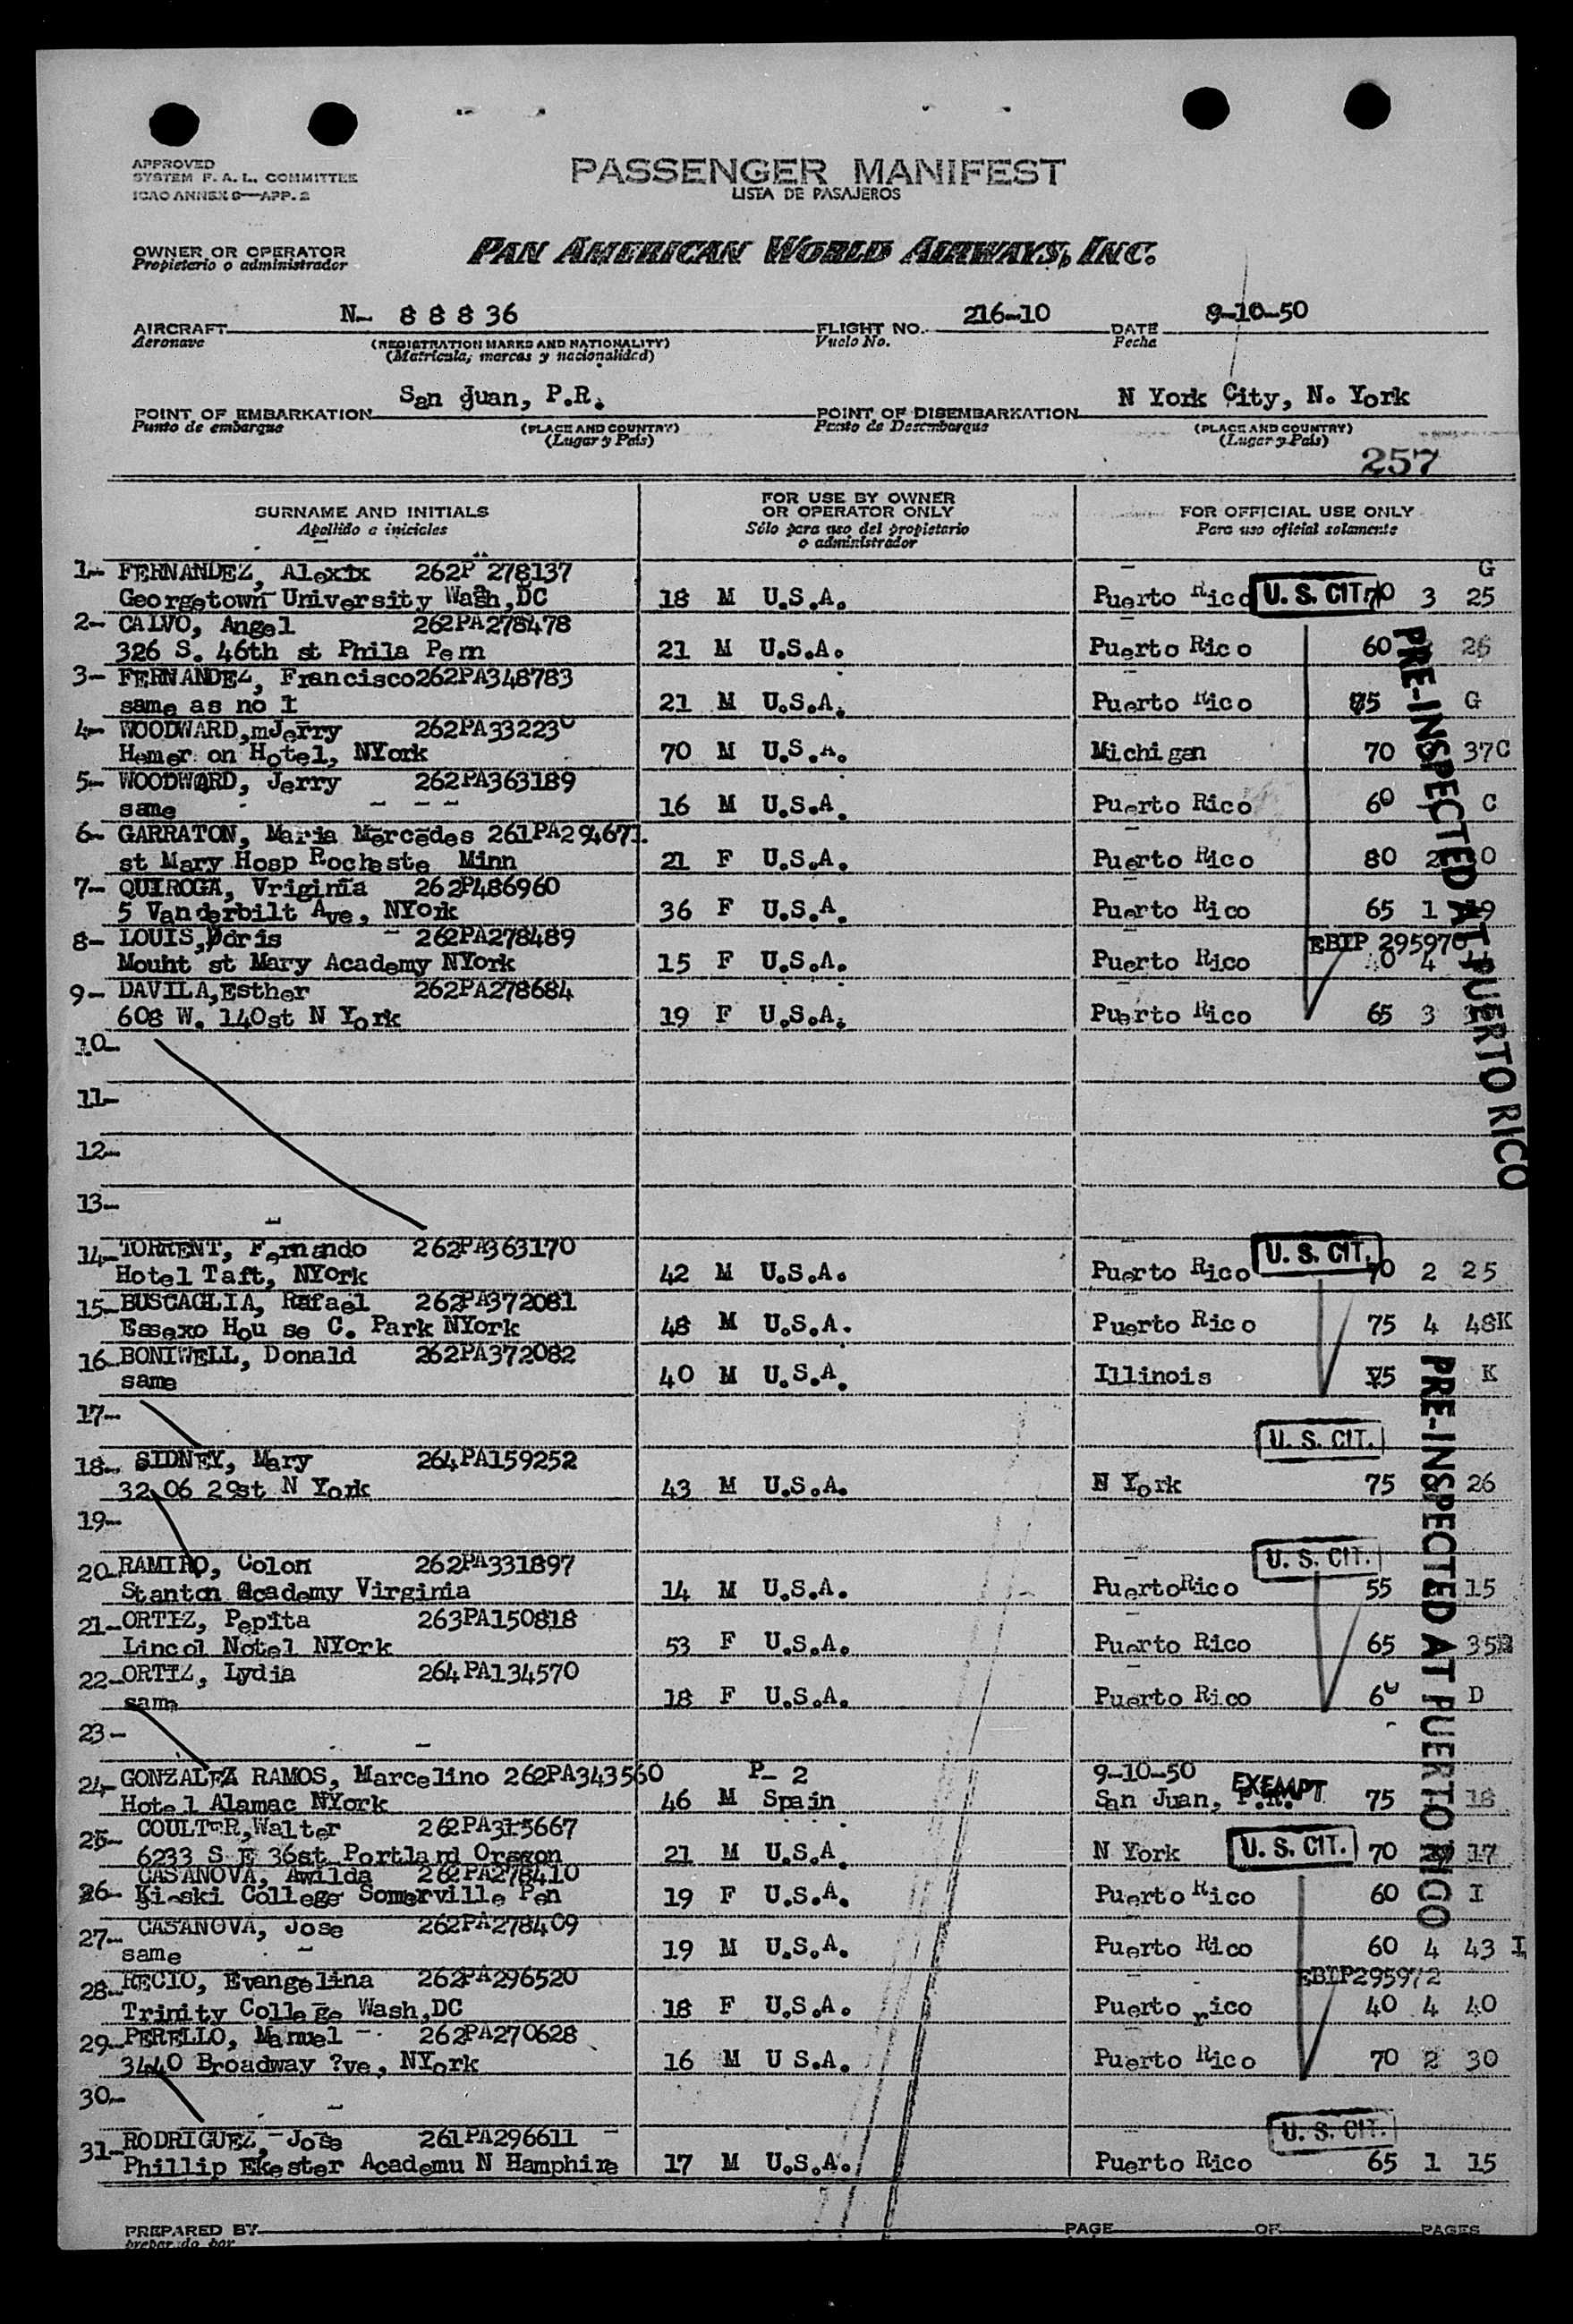 APPROVED
SYSTEM F. A. L. COMMITTEE
ICAO ANNEX 9—APP. 2
PASSENGER MANIFEST
LISTA DE PASAJEROS
OWNER OR OPERATOR
Propietario o administrador
PAN AMERICAN WORLD AIRWAYS, INC.
AIRCRAFT N- 8 8 8 36 FLIGHT NO. 216-10 DATE 9-10-50
Aeronave (REGISTRATION MARKS AND NATIONALITY) Vuelo No. Fecha
(Matrícula, marcas y nacionalidad)
POINT OF EMBARKATION San Juan, P.R. POINT OF DISEMBARKATION N York City, N. York
Punto de embarque (PLACE AND COUNTRY) Punto de Desembarque (PLACE AND COUNTRY)
(Lugar y País) (Lugar y País)
257
SURNAME AND INITIALS FOR USE BY OWNER OR OPERATOR ONLY FOR OFFICIAL USE ONLY
Apellido e iniciales Sólo para uso del propietario o administrador Para uso oficial solamente
1- FERNANDEZ, Alexix 262P 278137 G
Georgetown University Wash,DC 18 M U.S.A. Puerto Rico U. S. CIT. 70 3 25
2- CALVO, Angel 262PA278478
326 S. 46th st Phila Penn 21 M U.S.A. Puerto Rico 60 26
3- FERNANDEZ, Francisco262PA348783
same as no 1 21 M U.S.A. Puerto Rico 85 G
4- WOODWARD,mJerry 262PA332230
Hemer on Hotel, NYork 70 M U.S.A. Michigan 70 37C
5- WOODWARD, Jerry 262PA363189
same 16 M U.S.A Puerto Rico 60 C
6- GARRATON, Maria Mercedes 261PA294671
st Mary Hosp Rocheste Minn 21 F U.S.A. Puerto Rico 80 2 0
7- QUIROGA, Vriginia 262P486960
5 Vanderbilt Ave, NYork 36 F U.S.A. Puerto Rico 65 1 19
8- LOUIS,Doris 262PA278489 EBTP 295970
Mouht st Mary Academy NYork 15 F U.S.A. Puerto Rico 0 4
9- DAVILA,Esther 262PA278684
608 W. 140st N York 19 F U.S.A. Puerto Rico 65 3
PRE-INSPECTED AT PUERTO RICO
10-
11-
12-
13-
14- TORRENT, Fernando 262PA363170 U. S. CIT.
Hotel Taft, NYork 42 M U.S.A. Puerto Rico 70 2 25
15- BUSCAGLIA, Rafael 262PA372081
Essexo Hou se C. Park NYork 48 M U.S.A. Puerto Rico 75 4 48K
16- BONIWELL, Donald 262PA372082
same 40 M U.S.A. Illinois 75 K
17-
U. S. CIT.
18- SIDNEY, Mary 264PA159252
32 06 29st N York 43 M U.S.A. N York 75 26
19-
20- RAMIRO, Colon 262PA331897 U. S. CIT.
Stanton Academy Virginia 14 M U.S.A. PuertoRico 55 15
21- ORTIZ, Pepita 263PA150818
Lincol Notel NYork 53 F U.S.A. Puerto Rico 65 35
22- ORTIZ, Lydia 264PA134570
same 18 F U.S.A. Puerto Rico 60 D
23-
24- GONZALEZ RAMOS, Marcelino 262PA343560 P- 2 9-10-50
Hotel Alamac NYork 46 M Spain San Juan, P.R. EXEMPT 75 18
25- COULTER,Walter 262PA315667
6233 S E 36st Portland Oregon 21 M U.S.A. N York U. S. CIT. 70 17
26- CASANOVA, Awilda 262PA278410
Ki-ski College Somerville Pen 19 F U.S.A. Puerto Rico 60 I
27- CASANOVA, Jose 262PA278409
same 19 M U.S.A. Puerto Rico 60 4 43 I
28- RECIO, Evangelina 262PA296520 EBTP295972
Trinity College Wash,DC 18 F U.S.A. Puerto rico 40 4 40
29- PERELLO, Manuel 262PA270628
3440 Broadway ?ve, NYork 16 M U S.A. Puerto Rico 70 2 30
PRE-INSPECTED AT PUERTO RICO
30-
31- RODRIGUEZ, Jose 261PA296611 U. S. CIT.
Phillip Ekester Academu N Hamphire 17 M U.S.A. Puerto Rico 65 1 15
PREPARED BY PAGE OF PAGES